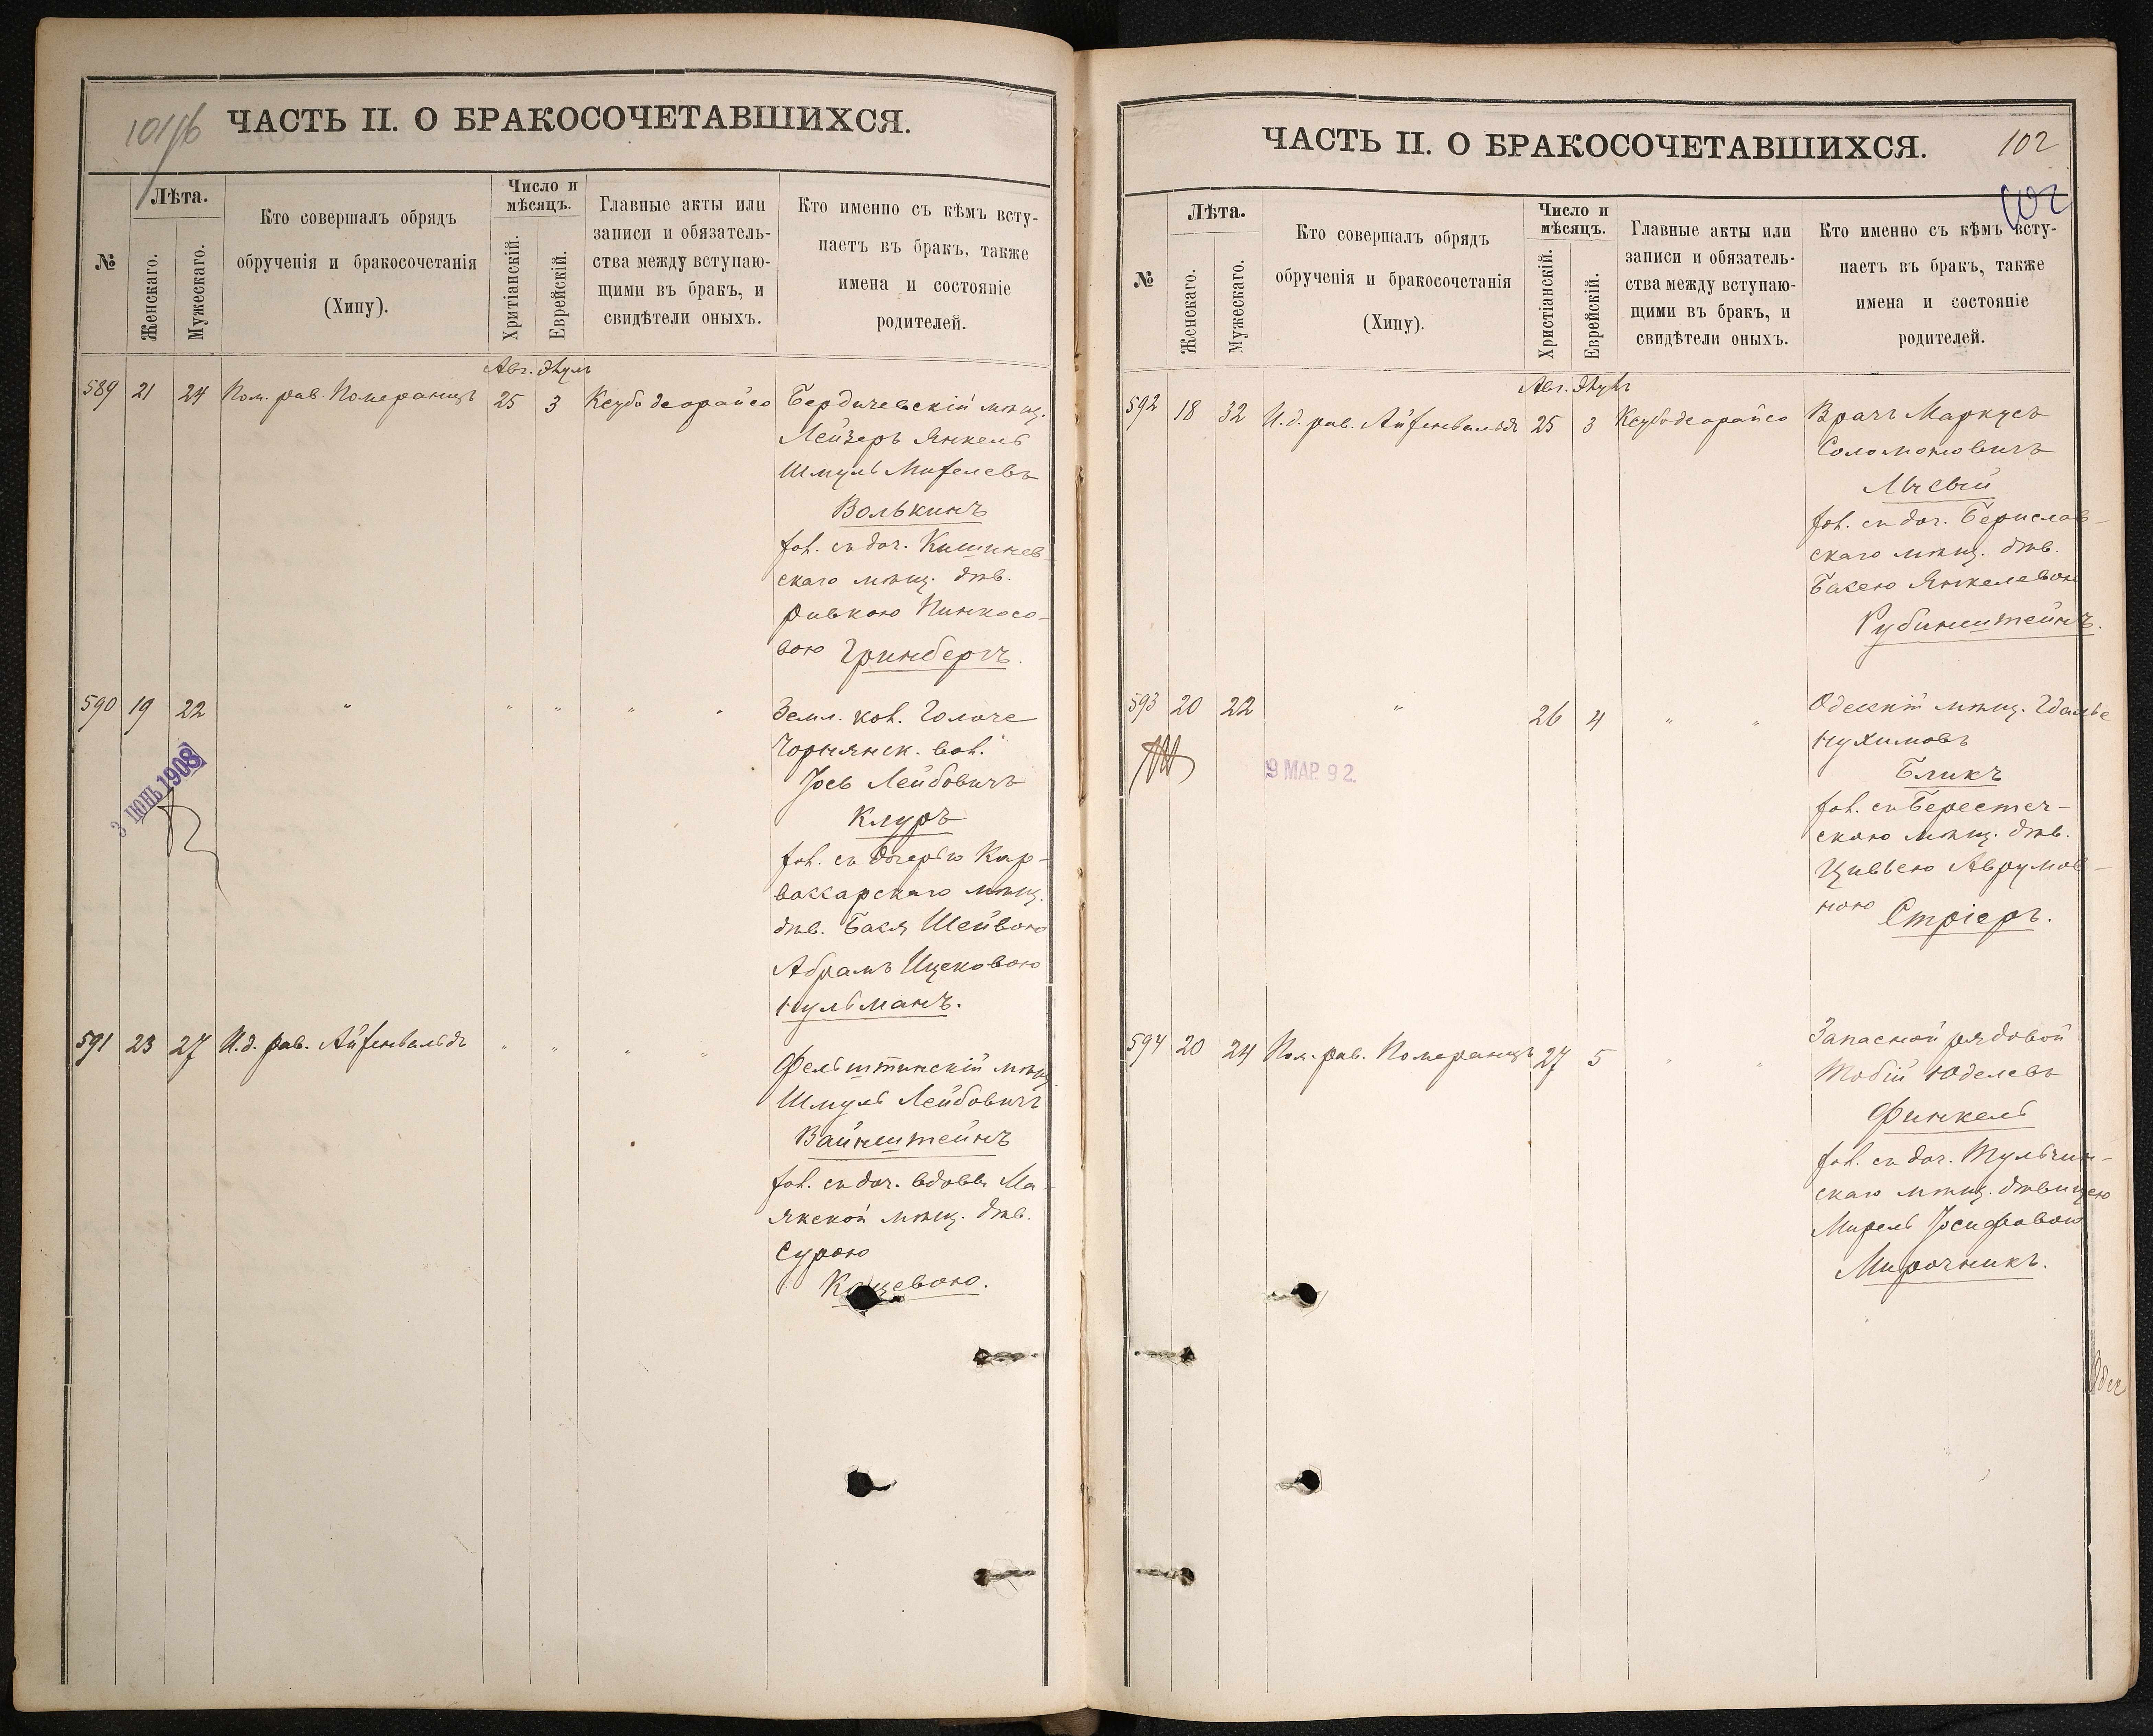 101/b
ЧАСТЬ II. О БРАКОСОЧЕТАВШИХСЯ.
№
Лѣта.
Женскаго.
Мужескаго.
Кто совершалъ обрядъ
обрученія и бракосочетанія
(Хипу).
Число и
мѣсяцъ.
Хритіанскій.
Еврейскій.
Главные акты или
записи и обязатель-
ства между вступаю-
щими въ бракъ, и
свидѣтели оныхъ.
Кто именно съ кѣмъ всту-
паетъ въ бракъ, также
имена и состояніе
родителей.
Авг. Элулъ
589 21 24 Пом. рав. Померанцъ 25 3 Ксубо деорайсо Бердичевскій мѣщ.
Лейзеръ Янкель
Шмуль
Волькинъ
съ доч. Кишинев
скаго мѣщ. дѣв.
Ривкою Пинхасо-
вою Гринбергъ.
590 19 22 " " " " " Земл. кол.
Іось Лейбовичъ
Клуръ
съ дочерью
мѣщ.
дѣв. Бася Шейвою
Абрамъ Ицековою
Нульманъ.
3 ІЮНЬ 1908
591 23 27 И.д. рав. Айзенвальдъ " " " " Фельштинскій мѣщ.
Шмуль Лейбовичъ
Вайнштейнъ
съ доч. вдовы Ма-
якской мѣщ. дѣв.
Сурою
ЧАСТЬ II. О БРАКОСОЧЕТАВШИХСЯ.
102
102
№
Лѣта.
Женскаго.
Мужескаго.
Кто совершалъ обрядъ
обрученія и бракосочетанія
(Хипу).
Число и
мѣсяцъ.
Христіанскій.
Еврейскій.
Главные акты или
записи и обязатель-
ства между вступаю-
щими въ бракъ, и
свидѣтели оныхъ.
Кто именно съ кѣмъ всту-
паетъ въ бракъ, также
имена и состояніе
родителей.
Авг. Элулъ
592 18 32 И.д. рав. Айзенвальдъ 25 3 Ксубо деорайсо Врачъ Маркусъ
Соломоновичъ
съ доч. Берислав-
скаго мѣщ. дѣв.
Басею Янкелевою
Рубинштейнъ.
593 20 22 " 26 4 " " Одесскій мѣщ. Гдалье
Нухимовъ
Бликъ
съ Берестеч-
скою мѣщ. дѣв.
Цивьею Аврумов-
ною Стріеръ.
9 МАР. 92.
594 20 24 Пом. рав. Померанцъ 27 5 " " Запасной рядовой
Тобій Юделевъ
Финкель
съ доч. Тульчин-
скаго мѣщ. дѣвицею
Мирель Іосифовою
Мирочникъ.